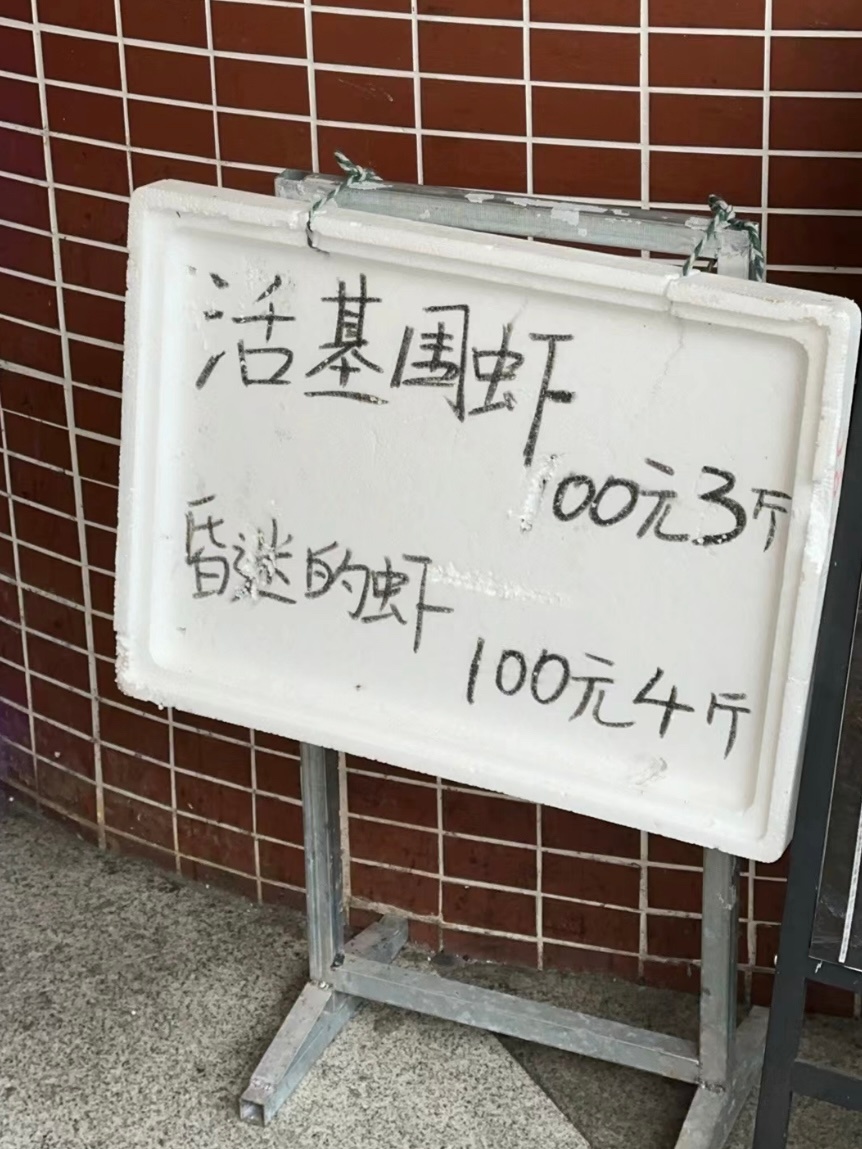 活基围虾
100元3斤
昏迷的虾
100元4斤